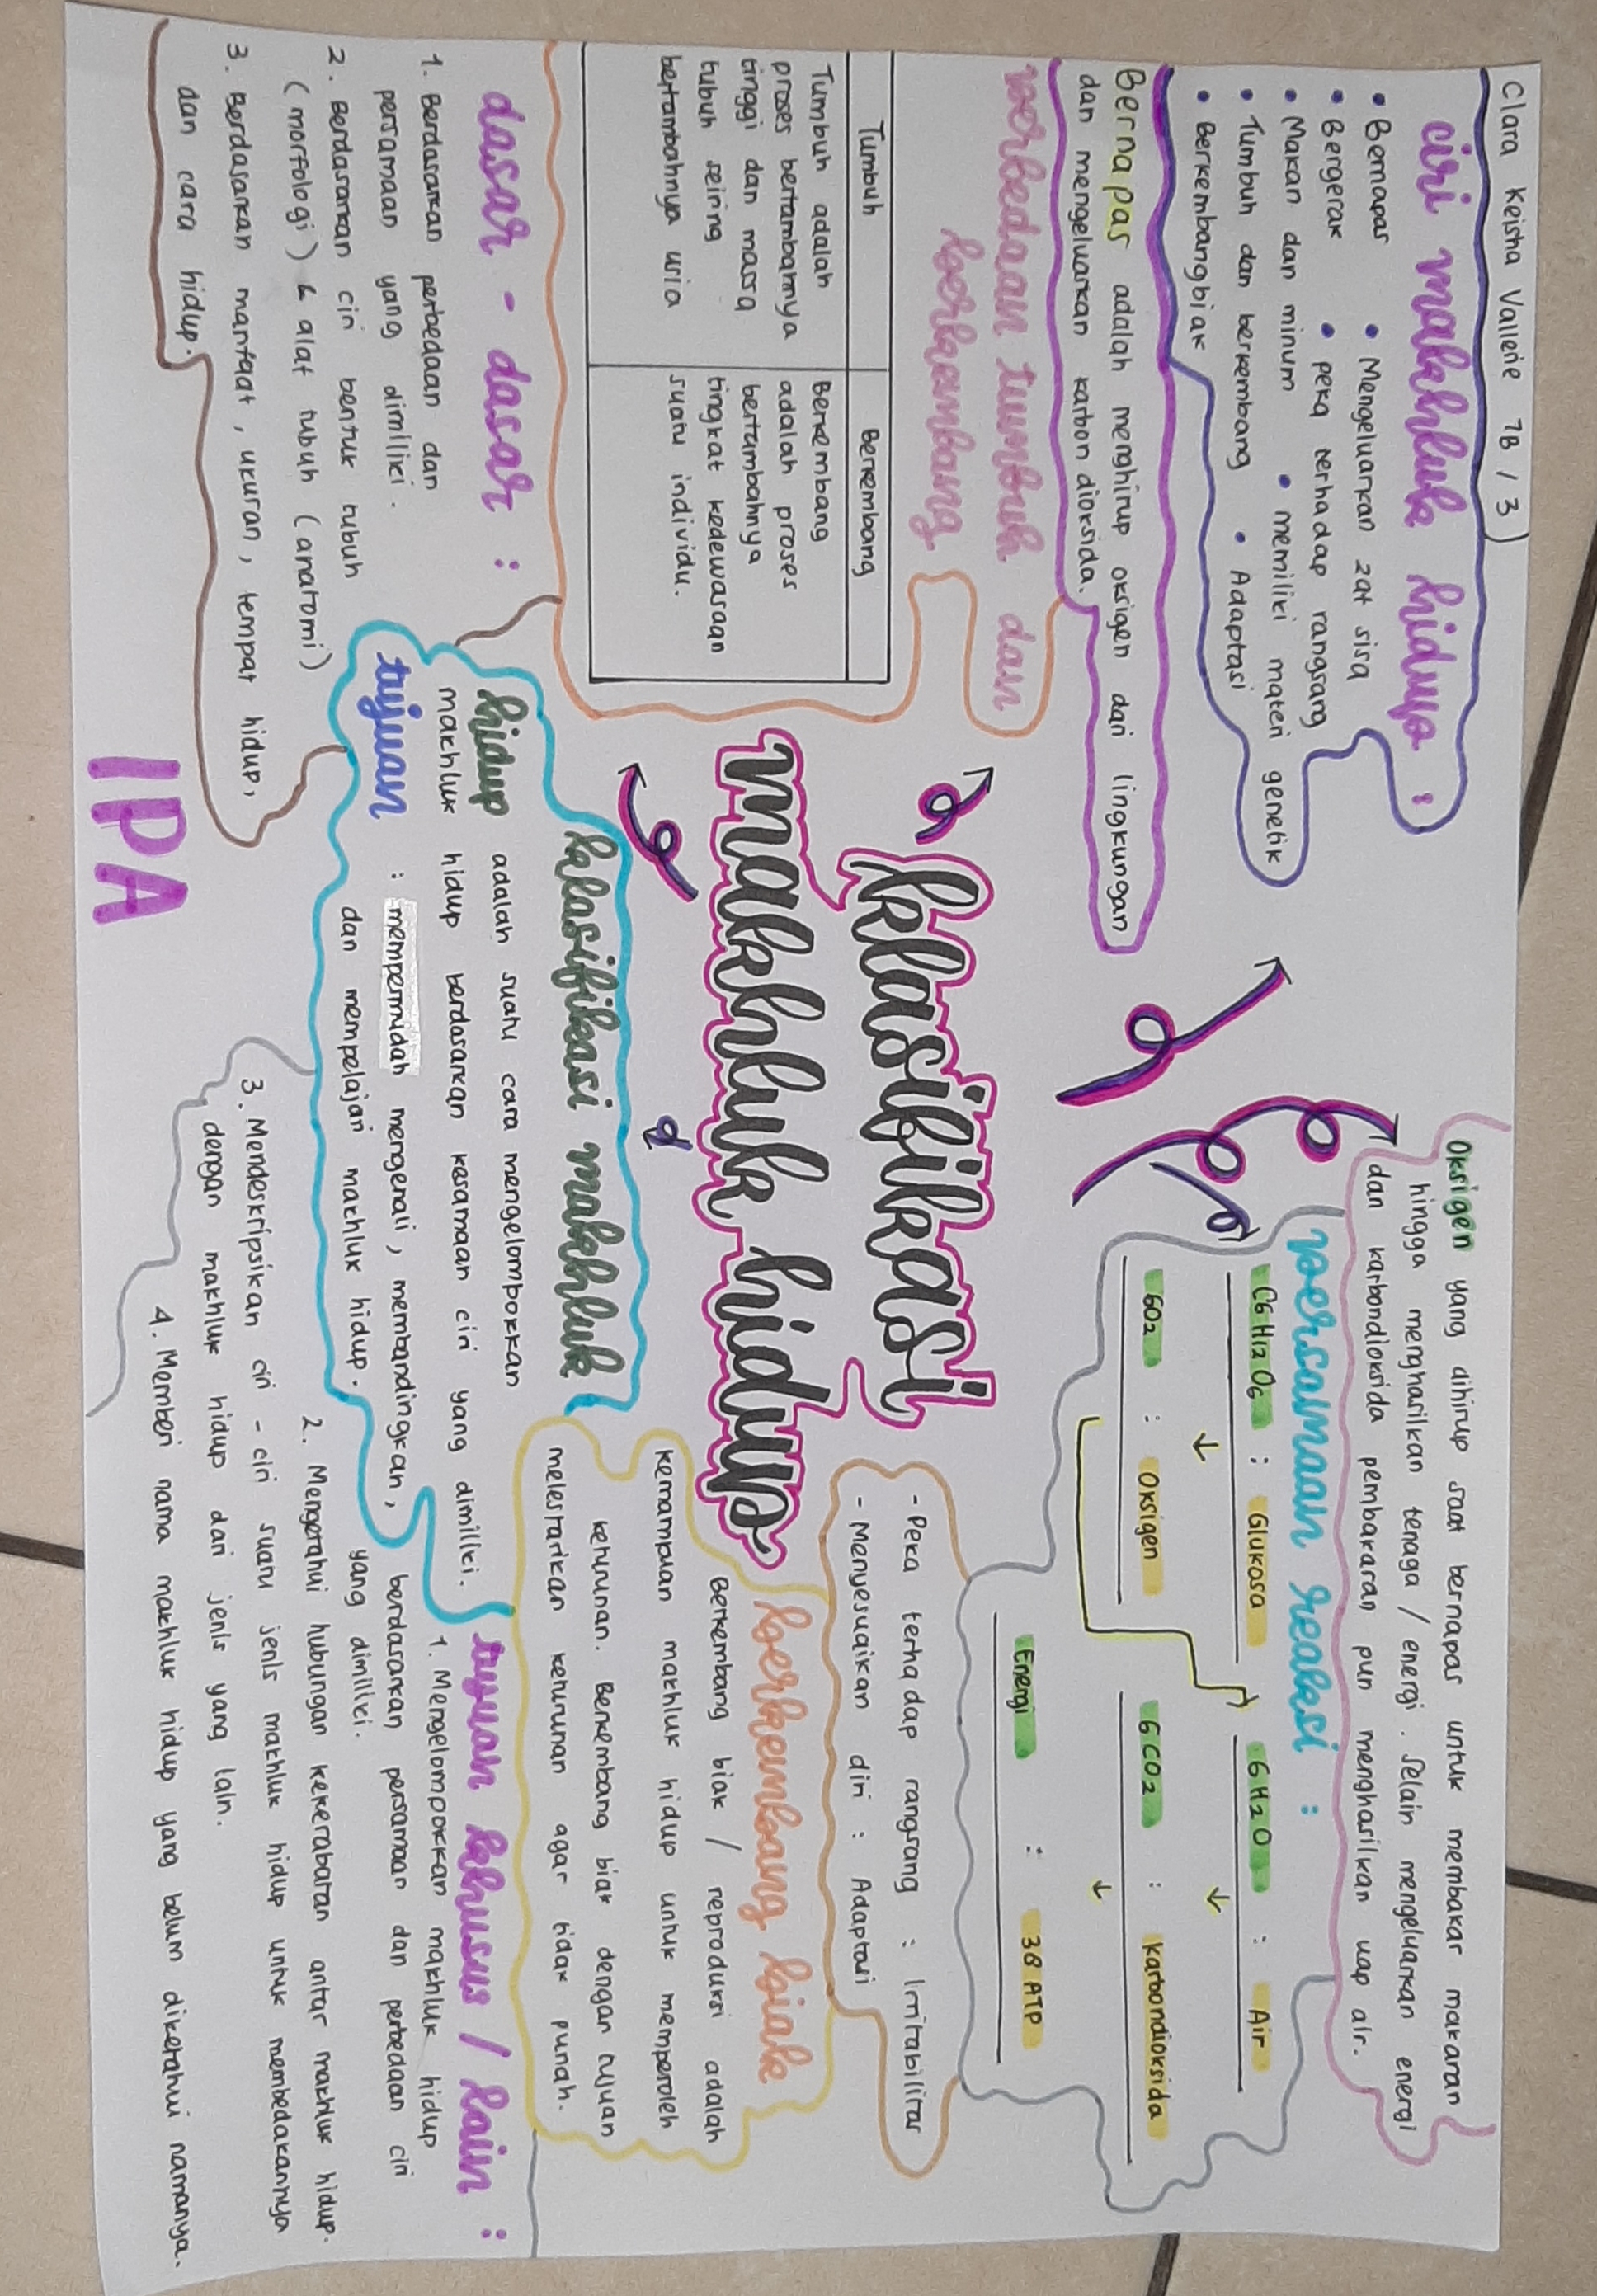 Clara Keisha Vallerie 7B / 3
ciri makhluk hidup :
• Bernapas
• Bergerak
• Makan dan minum
• Tumbuh dan berkembang
• Berkembangbiak
• Mengeluarkan zat sisa
• peka terhadap rangsang
• memiliki materi genetik
• Adaptasi
Bernapas adalah menghirup oksigen dari lingkungan
dan mengeluarkan karbon dioksida.
perbedaan tumbuh dan
berkembang
Tumbuh
Tumbuh adalah
proses bertambahnya
tinggi dan massa
tubuh seiring
bertambahnya usia
Berkembang
Berkembang
adalah proses
bertambahnya
tingkat kedewasaan
suatu individu.
dasar - dasar :
1. Berdasarkan perbedaan dan
persamaan yang dimiliki.
2. Berdasarkan ciri bentuk tubuh
(morfologi) & alat tubuh (anatomi)
3. Berdasarkan manfaat, ukuran, tempat hidup,
dan cara hidup.
IPA
klasifikasi
makhluk hidup
klasifikasi makhluk
hidup adalah suatu cara mengelompokkan
makhluk hidup berdasarkan kesamaan ciri yang dimiliki.
tujuan : mempermudah mengenali, membandingkan,
dan mempelajari makhluk hidup.
Oksigen yang dihirup saat bernapas untuk membakar makanan
hingga menghasilkan tenaga / energi. Selain mengeluarkan energi
dan karbondioksida pembakaran pun menghasilkan uap air.
persamaan reaksi :
C6H12O6 : Glukosa
↓
6O2 : Oksigen
6H2O : Air
↓
6CO2 : Karbondioksida
↓
Energi : 38 ATP
- Peka terhadap rangsang : Irritabilitas
- Menyesuaikan diri : Adaptasi
berkembang biak
Berkembang biak / reproduksi adalah
kemampuan makhluk hidup untuk memperoleh
keturunan. Berkembang biak dengan tujuan
melestarikan keturunan agar tidak punah.
tujuan khusus / lain :
1. Mengelompokkan makhluk hidup
berdasarkan persamaan dan perbedaan ciri
yang dimiliki.
2. Mengetahui hubungan kekerabatan antar makhluk hidup.
3. Mendeskripsikan ciri - ciri suatu jenis makhluk hidup untuk membedakannya
dengan makhluk hidup dari jenis yang lain.
4. Memberi nama makhluk hidup yang belum diketahui namanya.